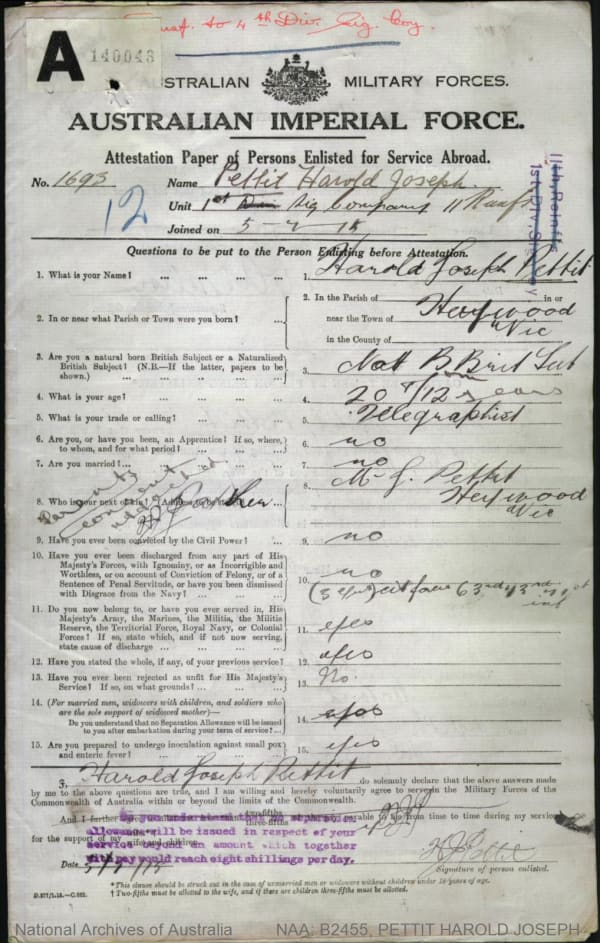 to 4th Div. Sig. Coy.
A
140043
AUSTRALIAN MILITARY FORCES.
AUSTRALIAN IMPERIAL FORCE.
Attestation Paper of Persons Enlisted for Service Abroad.
No. 1693 Name Pettit Harold Joseph.
12
Unit 1st Sig Company 11 Reinf
Joined on 5-7-15
Questions to be put to the Person Enlisting before Attestation.
1. What is your Name? ... ... ... ... 1. Harold Joseph Pettit
2. In or near what Parish or Town were you born? ... 2. In the Parish of in or
near the Town of Heywood
in the County of Vic
3. Are you a natural born British Subject or a Naturalized British Subject? (N.B.—If the latter, papers to be shown.) ... 3. Nat B Brit Sub
4. What is your age? ... ... ... 4. 20 7/12 years
5. What is your trade or calling? ... ... ... 5. Telegraphist
6. Are you, or have you been, an Apprentice? If so, where, to whom, and for what period? ... ... 6. no
7. Are you married? ... ... ... ... 7. no
8. Who is your next of kin? (Address to be stated) 8. Pettit
Heywood
Vic
Parents
consent
9. Have you ever been convicted by the Civil Power? ... 9. no
10. Have you ever been discharged from any part of His Majesty's Forces, with Ignominy, or as Incorrigible and Worthless, or on account of Conviction of Felony, or of a Sentence of Penal Servitude, or have you been dismissed with Disgrace from the Navy? ... ... 10. no
11. Do you now belong to, or have you ever served in, His Majesty's Army, the Marines, the Militia, the Militia Reserve, the Territorial Force, Royal Navy, or Colonial Forces? If so, state which, and if not now serving, state cause of discharge ... ... 11. yes
12. Have you stated the whole, if any, of your previous service? 12. yes
13. Have you ever been rejected as unfit for His Majesty's Service? If so, on what grounds? ... ... 13. No.
14. (For married men, widowers with children, and soldiers who are the sole support of widowed mother)—
Do you understand that no Separation Allowance will be issued to you after embarkation during your term of service? ... 14. yes
15. Are you prepared to undergo inoculation against small pox and enteric fever? ... ... ... 15. yes
I, Harold Joseph Pettit do solemnly declare that the above answers made
by me to the above questions are true, and I am willing and hereby voluntarily agree to serve in the Military Forces of the
Commonwealth of Australia within or beyond the limits of the Commonwealth.
And I further to me from time to time during my service
for the support of my wife and children.
allowance will be issued in respect of your
service beyond an amount which together
with pay would reach eight shillings per day.
Date 5/7/15
H J Pettit
Signature of person enlisted.
*This clause should be struck out in the case of unmarried men or widowers without children under 18 years of age.
† Two-fifths must be allotted to the wife, and if there are children three-fifths must be allotted.
National Archives of Australia NAA: B2455, PETTIT HAROLD JOSEPH